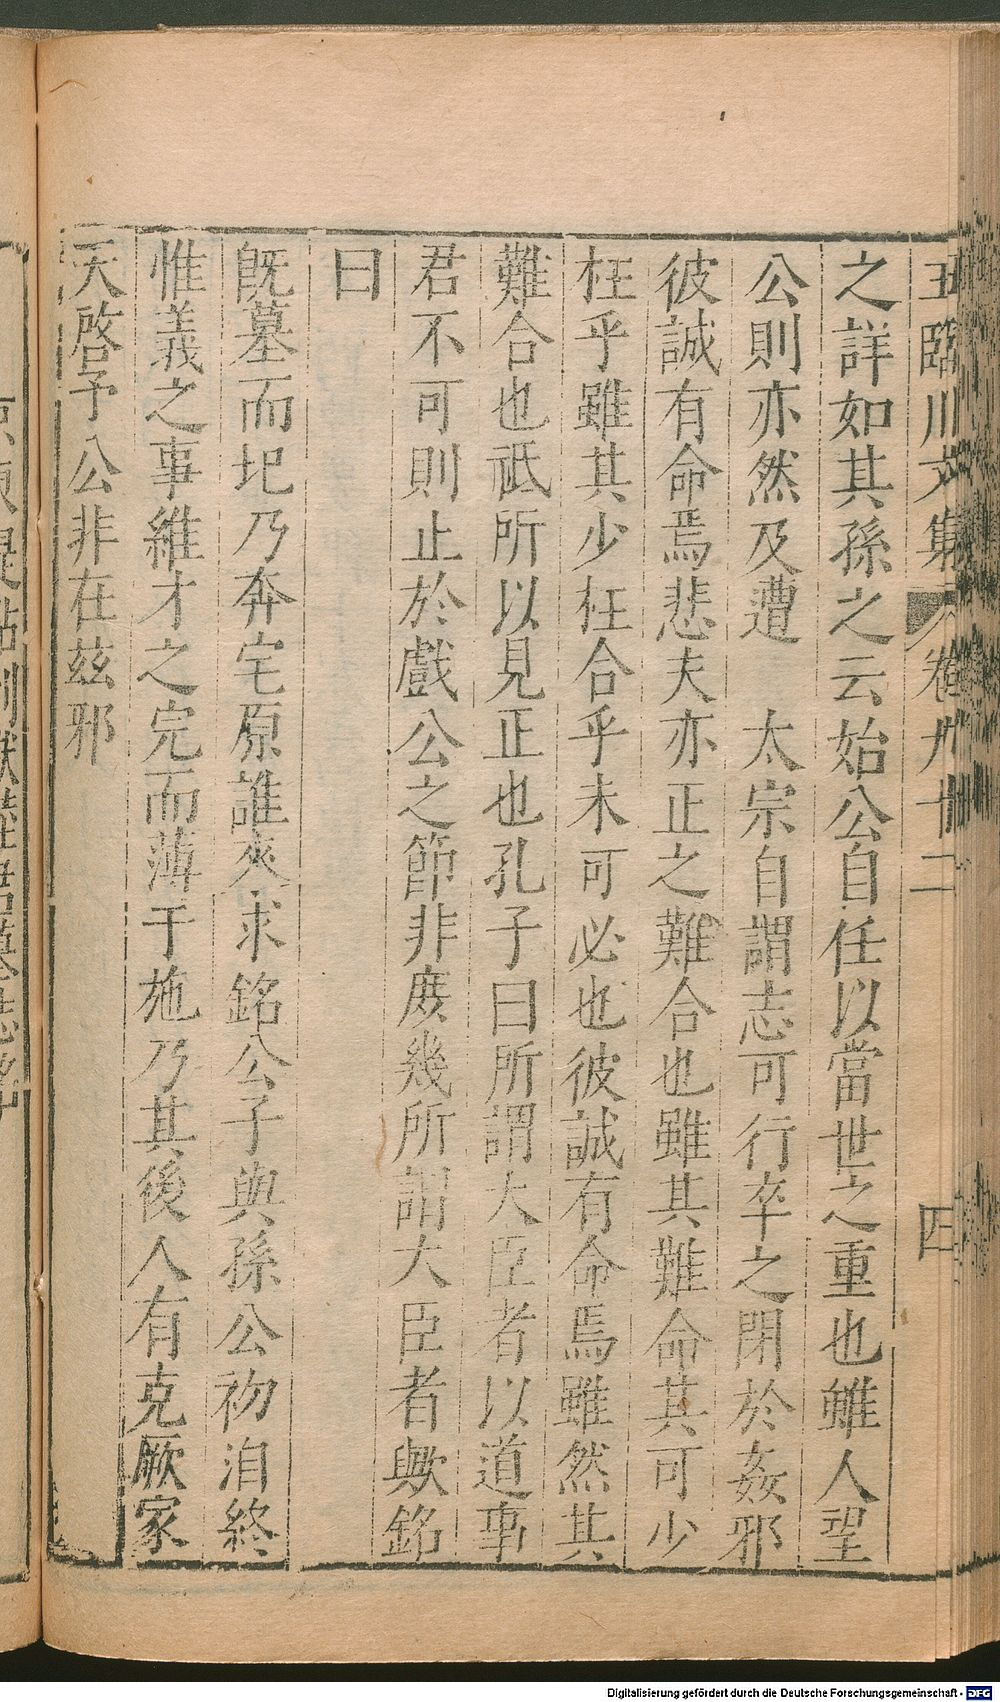 王臨川文集 卷九十二 四
之詳如其孫之云始公自任以當世之重也雖人望
公則亦然及遭 太宗自謂志可行卒之閉於姦邪
彼誠有命焉悲夫亦正之難合也雖其難命其可少
枉乎雖其少枉合乎未可必也彼誠有命焉雖然其
難合也祗所以見正也孔子曰所謂大臣者以道事
君不可則止於戲公之節非庶幾所謂大臣者歟銘
曰
旣墓而圮乃奔宅原誰來求銘公子與孫公初洎終
惟義之事維才之完而薄于施乃其後人有克厥家
天啓予公非在玆邪
Digitalisierung gefördert durch die Deutsche Forschungsgemeinschaft - DFG